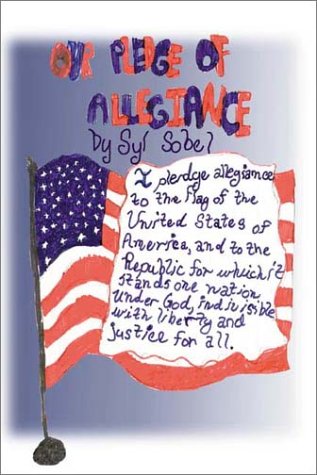 OUR PLEDGE OF
ALLEGIANCE
by Syl Sobel
I pledge allegiance
to the flag of the
United States of
America, and to the
Republic for which it
stands one nation,
Under God, indivisible
with liberty and
justice for all.